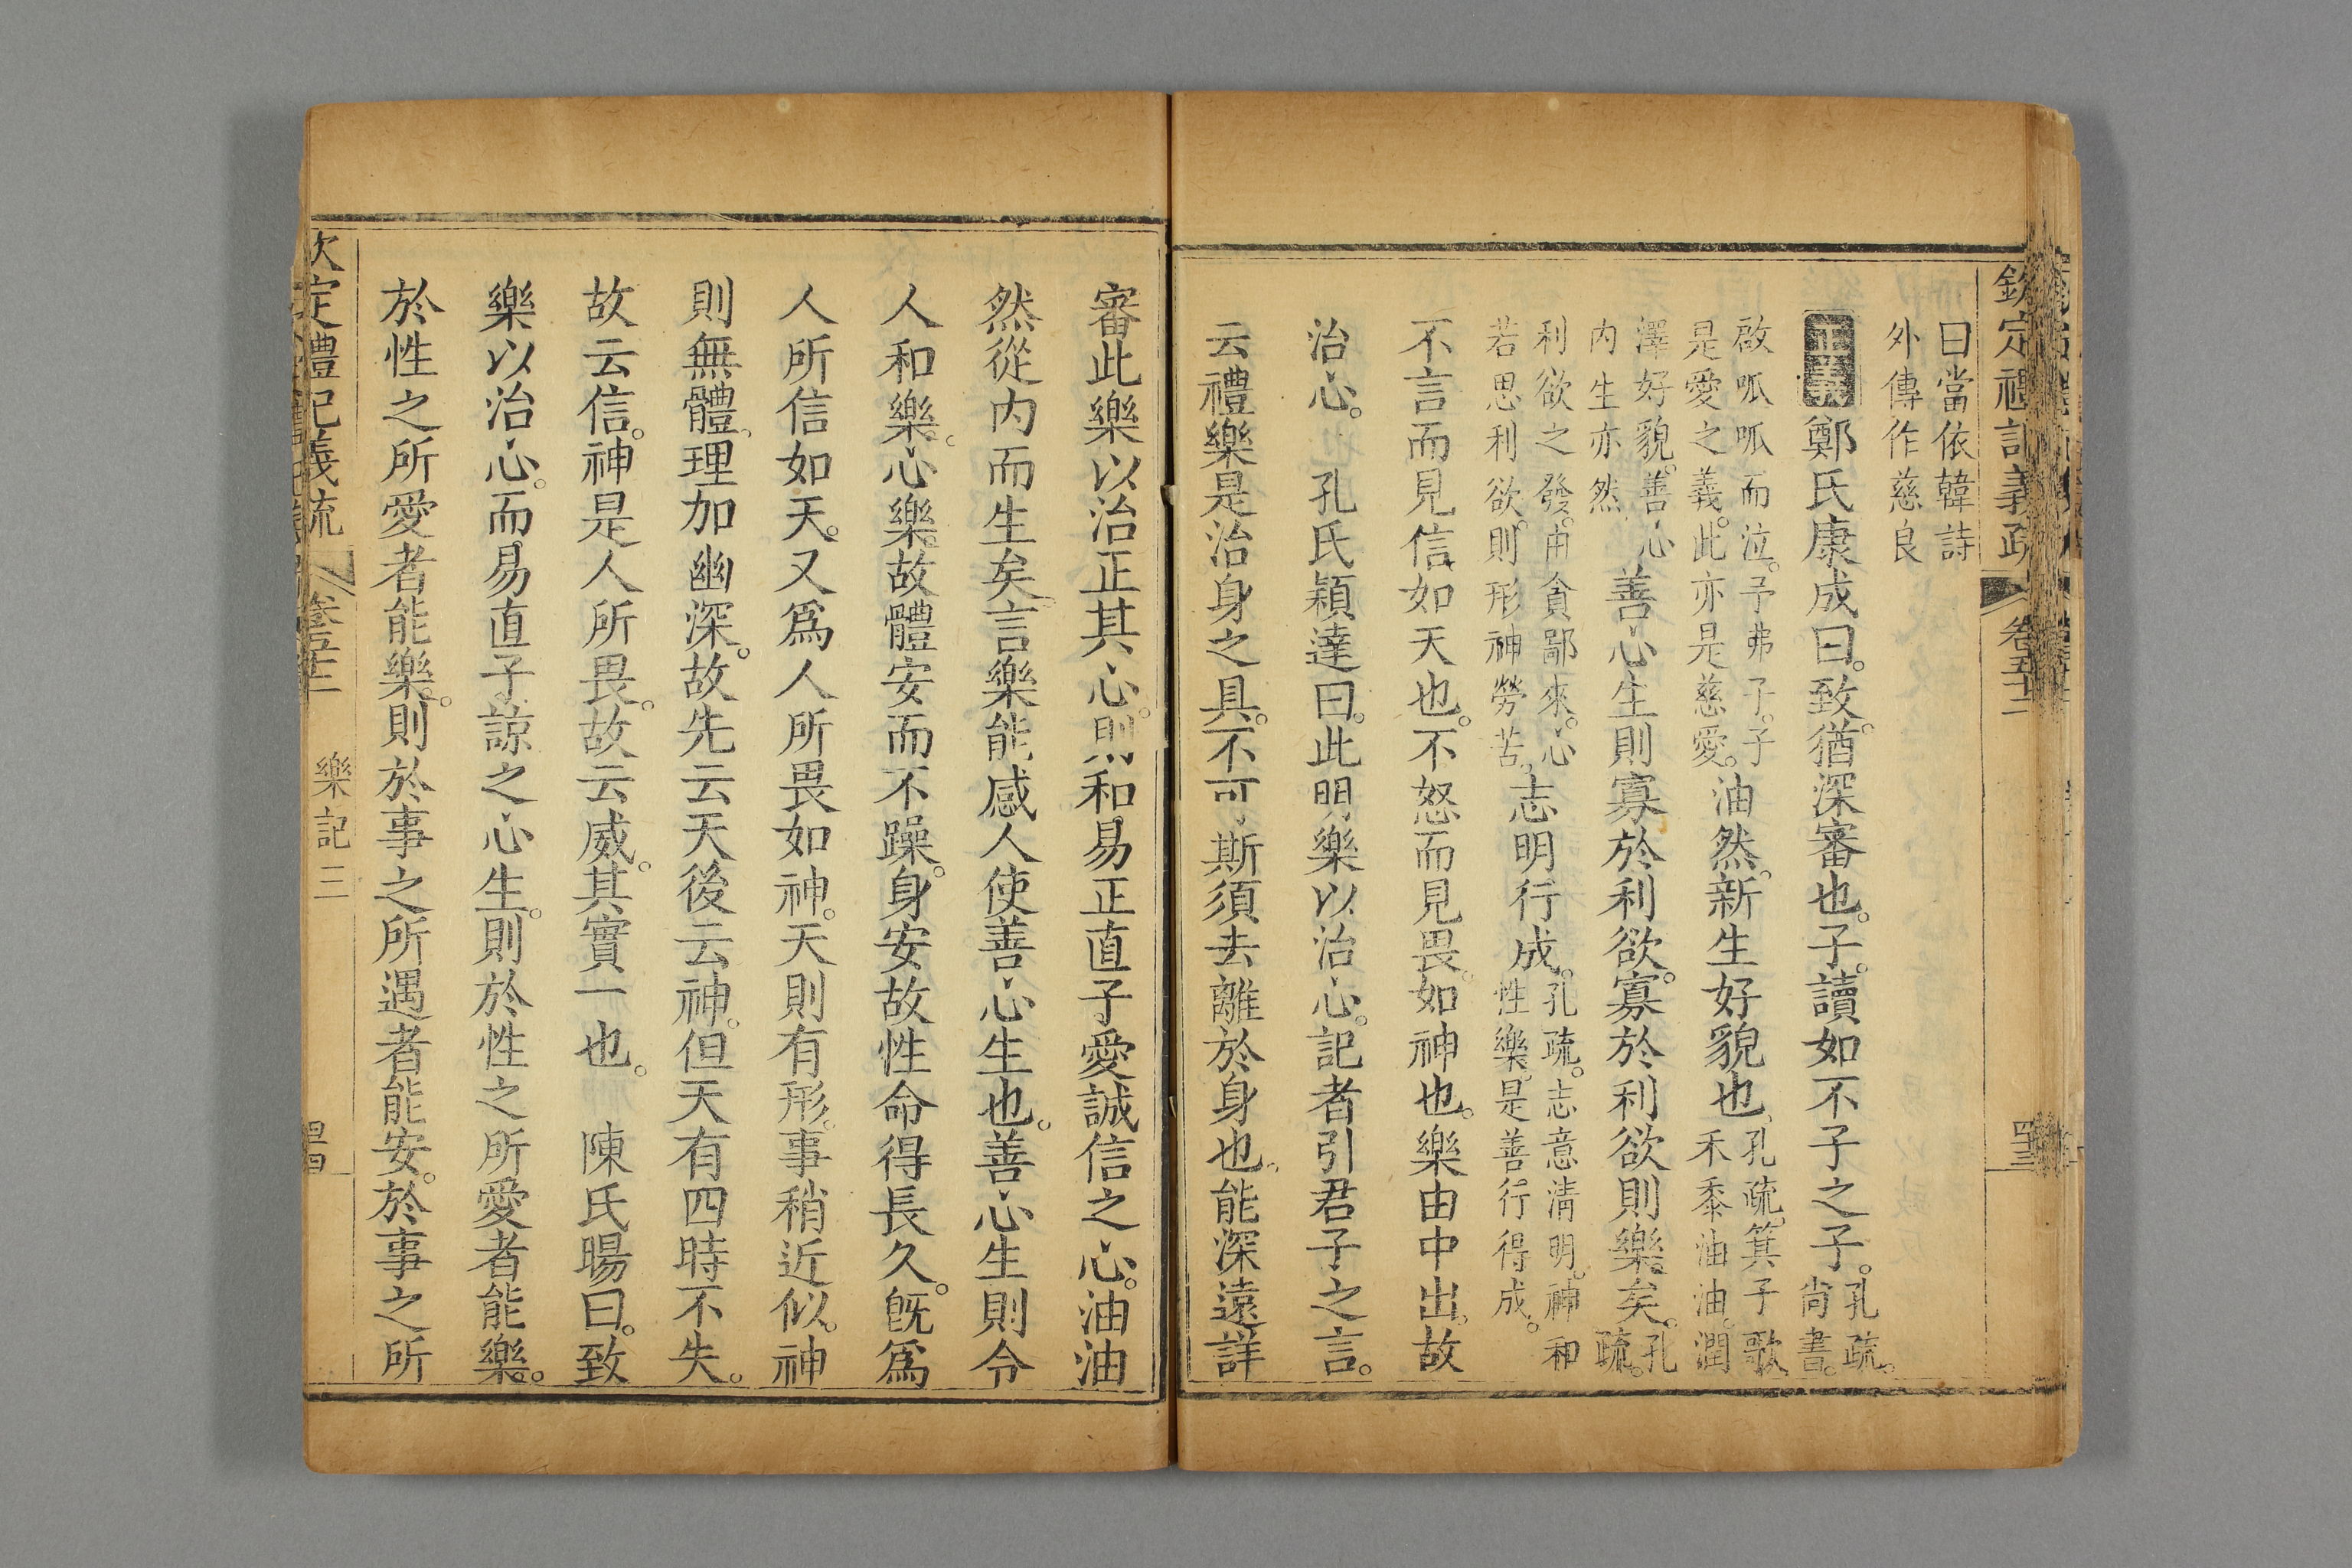 欽定禮記義疏 卷五十二
曰當依韓詩
外傳作慈良
正義 鄭氏康成曰。致。猶深審也。子。讀如不子之子。孔疏。尚書。
啟呱呱而泣。予弗子。子是愛之義。此亦是慈愛。油然。新生好貌也、孔疏、箕子歌、禾黍油油。潤
澤好貌。善心内生亦然 善心生則寡於利欲。寡於利欲則樂矣。孔疏。
利欲之發。由貪鄙來。心若思利欲。則形神勞苦。志明行成。孔疏。志意淸明。神和性樂。是善行得成。
不言而見信如天也。不怒而見畏。如神也。樂由中出。故
治心。 孔氏穎達曰。此明樂以治心。記者引君子之言。
云禮樂是治身之具。不可斯須去離於身也。能深遠詳
審此樂以治正其心。則和易正直子愛誠信之心。油油
然從内而生矣。言樂能感人使善心生也。善心生則令
人和樂。心樂。故體安而不躁。身安故性命得長久。旣爲
人所信如天。又爲人所畏如神。天則有形。事稍近似。神
則無體、理加幽深。故先云天後云神。但天有四時不失。
故云信。神是人所畏。故云威。其實一也。 陳氏暘曰。致
樂以治心。而易直子諒之心生。則於性之所愛者能樂。
於性之所愛者能樂。則於事之所遇者能安。於事之所
欽定禮記義疏 卷五十二 樂記 三